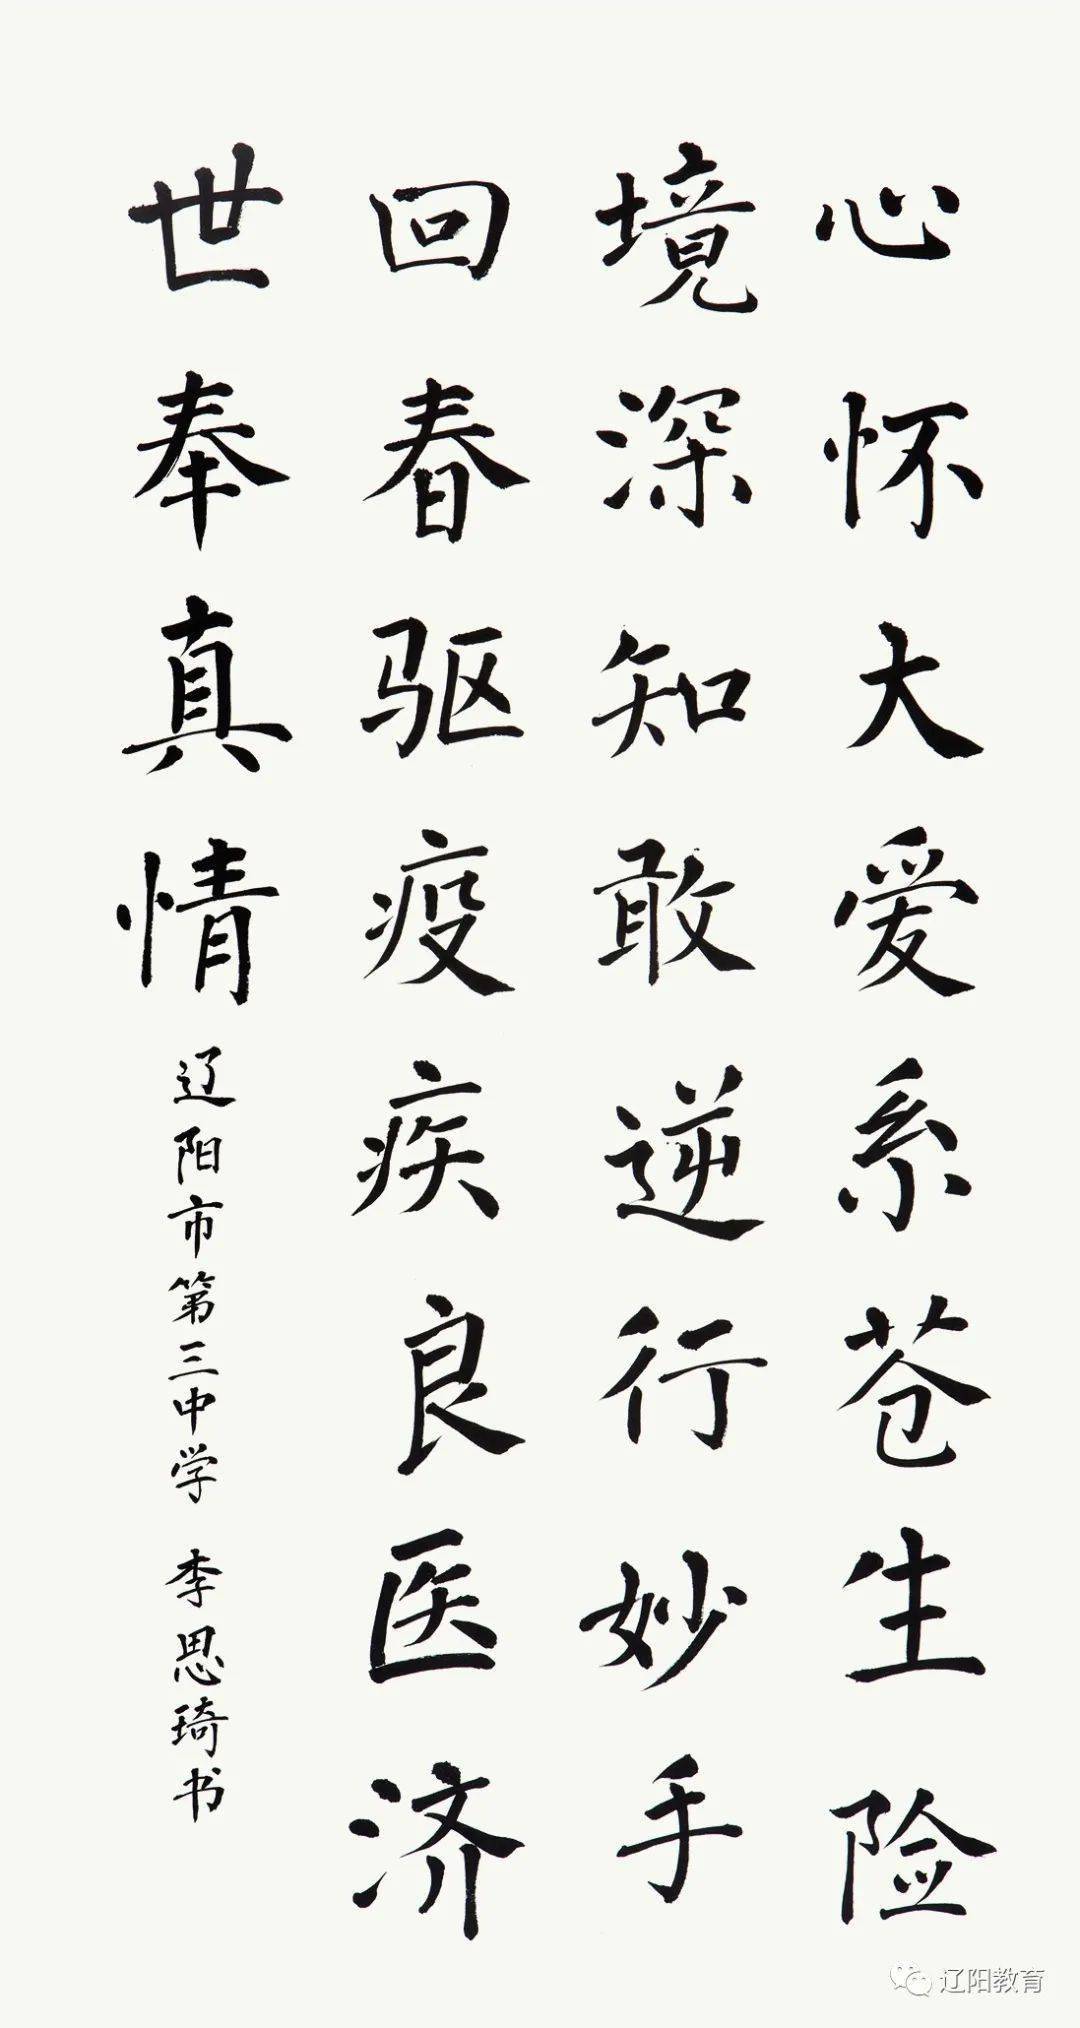 心怀大爱系苍生险
境深知敢逆行妙手
回春驱疫疾良医济
世奉真情
辽阳市第三中学 李思琦书
辽阳教育